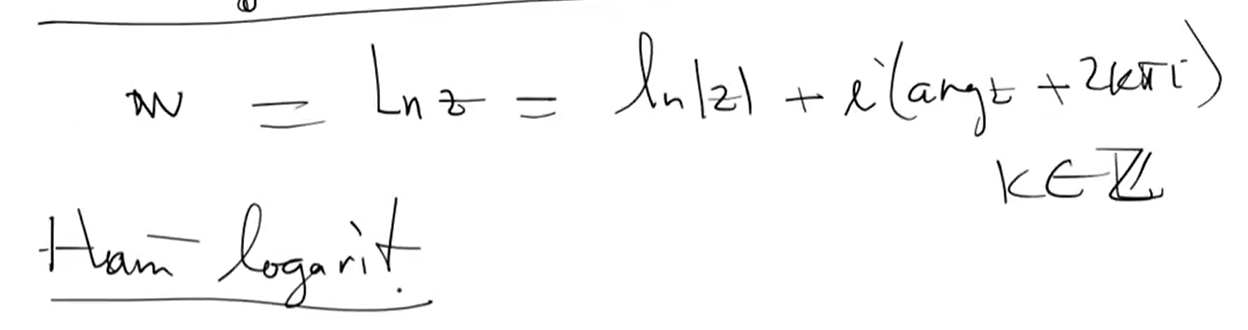 w = Ln z = ln|z| + i(arg z + 2kπi)
k ∈ ℤ
Hàm logarit